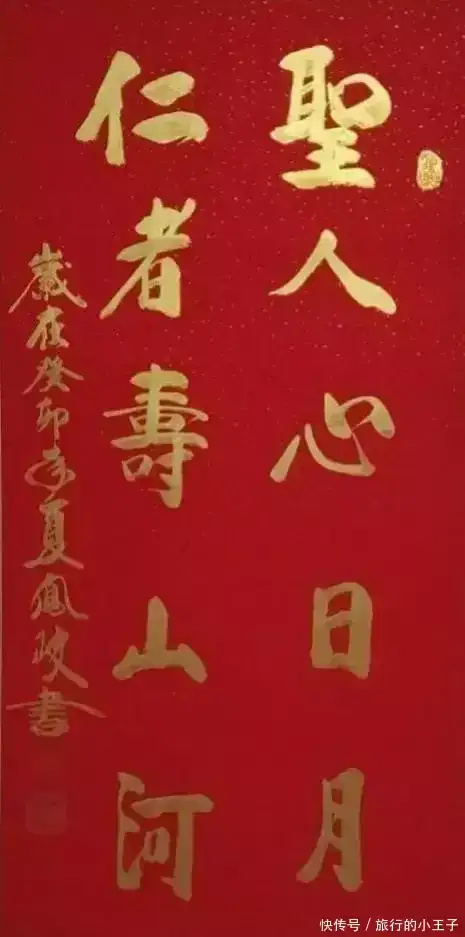 聖人心日月
仁者壽山河
歲在癸卯年夏鳳岐書
快传号 / 旅行的小王子